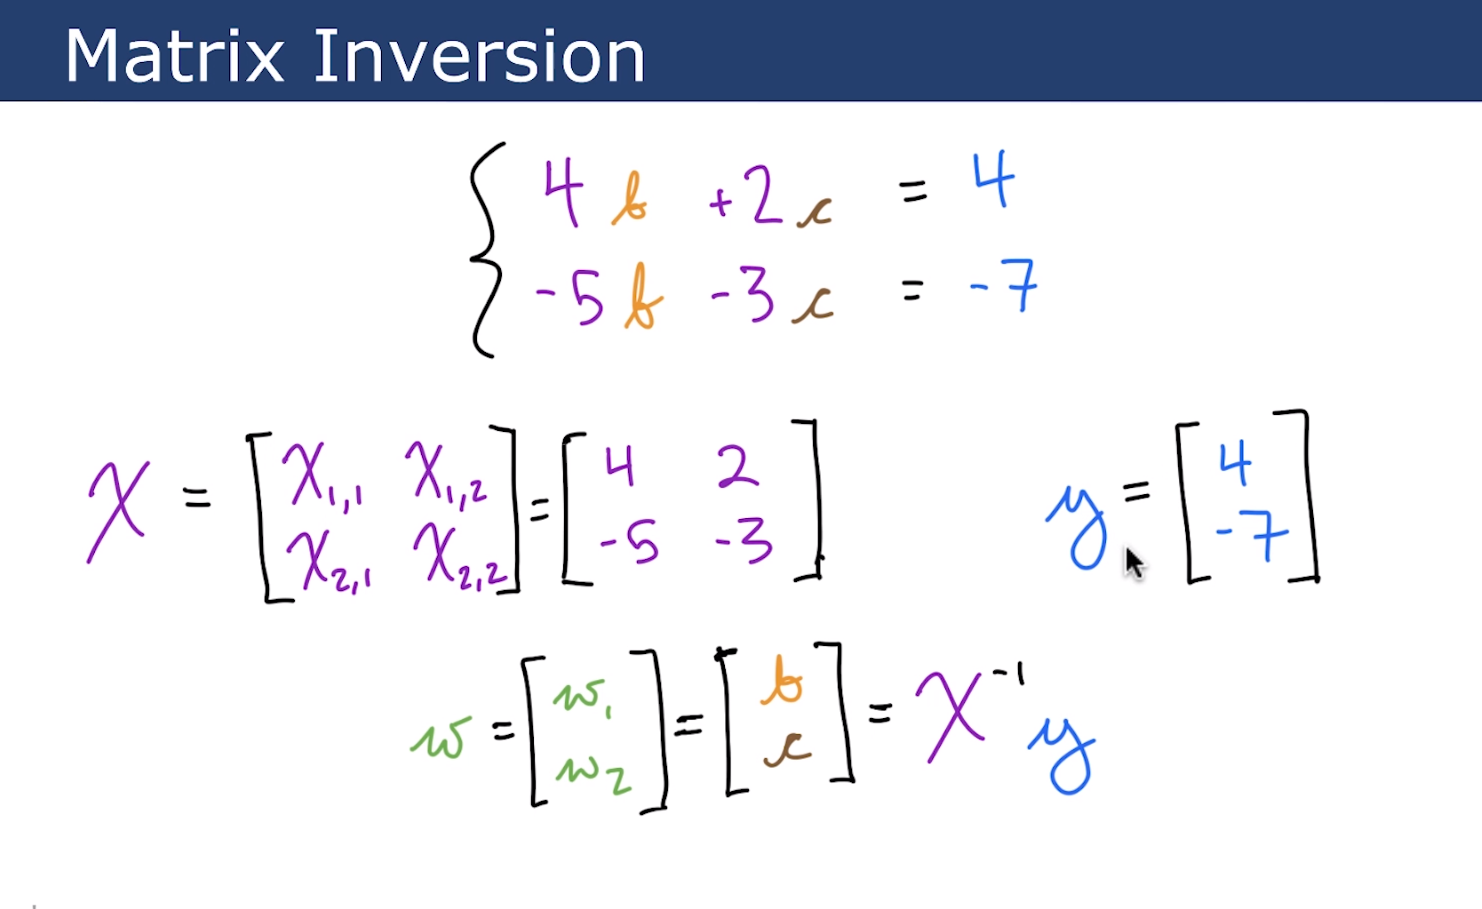 Matrix Inversion
4b +2c = 4
-5b -3c = -7
X = [X₁,₁ X₁,₂ = [4 2] y = [4
X₂,₁ X₂,₂] -5 -3 -7]
w = [w₁ w₂] = [b c] = X⁻¹y